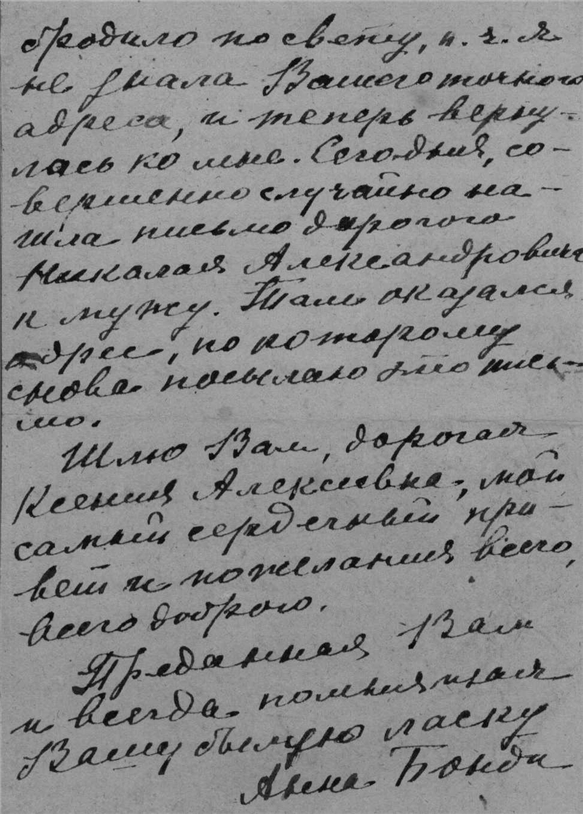 бродило по свету, п. ч. я
не знала Вашего точного
адреса, и теперь верну-
лась ко мне. Сегодня, со-
вершенно случайно на-
шла письмо дорогого
Николая Александровича
к мужу. Там оказался
адрес, по которому
снова посылаю это пись-
мо.
Шлю Вам, дорогая
Ксения Алексеевна, мой
самый сердечный при-
вет и пожелания всего,
всего доброго.
Преданная Вам
и всегда помнящая
Вашу былую ласку
Анна Бонди